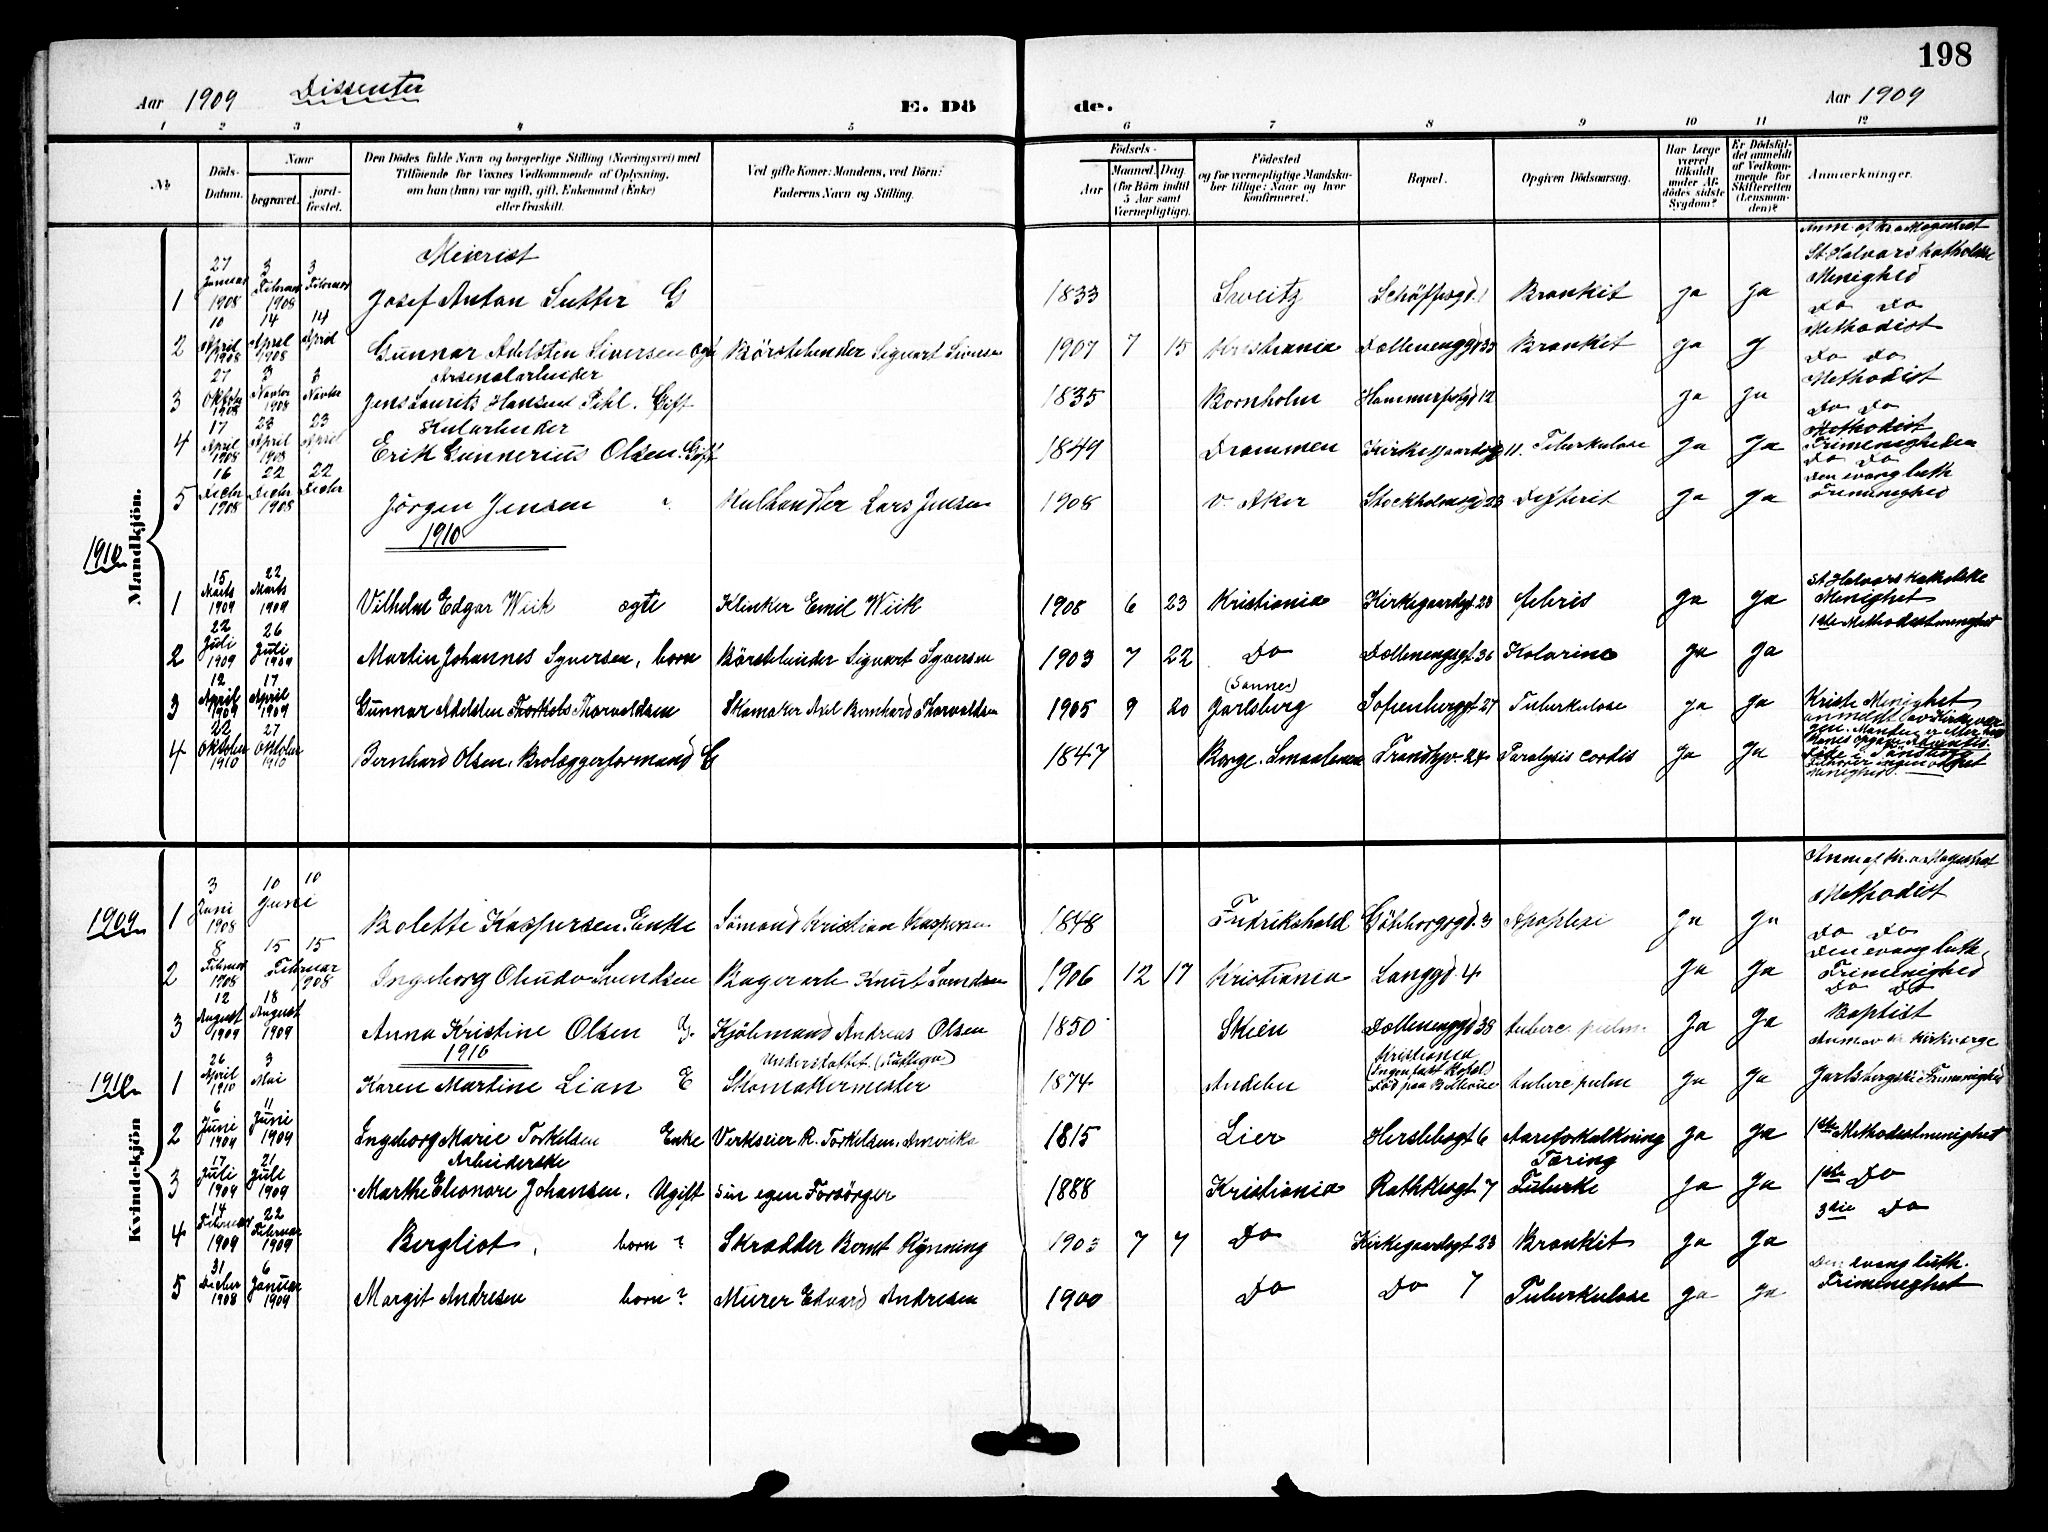 198
Aar 1909 Dissenter E. Dö de. Aar 1909
1 2 3 4 5 6 7 8 9 10 11 12
№ Döds-Datum. Naar begravet. jord-fæstet. Den Dödes fulde Navn og borgerlige Stilling (Næringsvei) med Tilföiende for Voxnes Vedkommende af Oplysning, om han (hun) var ugift, gift, Enkemand (Enke) eller fraskilt. Ved gifte Koner: Mandens, ved Börn: Faderens Navn og Stilling. Födsels- Aar Maaned. Dag. (for Börn indtil 5 Aar samt Værnepligtige). Födested og for værnepligtige Mandska-ber tillige: Naar og hvor Konfirmeret. Bopæl. Opgiven Dödsaarsag. Har Læge været tilkaldt under Af-dödes sidste Sygdom? Er Dödsfal-det anmeldt af Vedkom-mende for Skifteretten (Lensman-den)? Anmærkninger.
Mandkjön.
Meierist
1 27 Januar 1908 3 Februar 1908 3 Februar Josef Anton Sutter G 1833 Sveitz Bronkit ja ja St Halvards katholske Menighed
2 10 April 1908 14 April 1908 14 April Gunnar Adelsten Siversen ægte Börstebinder Sigvart Siversen 1907 7 15 Kristiania Dællenenggd 33 Bronkit ja j Do Do Methodist
Arsenalarbeider
3 27 Oktober 1908 3 Novbr 1908 3 Novbr Jens Laurits Hansen Pihl. Gift 1835 Bornholm Hammerfestgd 12 ja ja Do Do Methodist
4 17 April 1908 23 April 1908 23 April Erik Gunnerius Olsen. Gift 1849 Drammen Kirkegaardsgd 11. Tuberkulose ja ja Do Do Methodist Frimenigheden
5 16 Decbr 1908 22 Decbr 1908 22 Decbr Jörgen Jensen Kulhandler Lars Jensen 1908 V. Aker Stockholmsgd 23 Difterit ja ja Do Do Den evang luth Frimenighed
1910
1910
1 15 Marts 1909 22 Marts 1909 Vilhelm Edgar Wiik ægte Klinker Emil Wiik 1908 6 23 Kristiania Kirkegaardsgt 20 febris ja ja St Halvars katholske Menighet
2 22 Juli 1909 26 Juli 1909 Martin Johannes Syversen, barn Börstebinder Sigvart Syversen 1903 7 22 Do Dællenengsgt 36 Kolarine ja ja 1ste Methodistmenighet
3 12 April 1909 17 April 1909 Gunnar Adelsten Thorkels Thorvaldsen Skomaker Axel Bernhard Thorvaldsen 1905 9 20 (Sannes) Jarlsberg Sofienberggt 27 Tuberkulose ja ja Kristi Menighet
4 22 Oktober 1910 27 Oktober 1910 Bernhard Olsen. Brolæggerformand G 1847 Borge. Smaalenen Trondhjv. 24 Paralysis cordis ja ja
Kvindekjön
1909
1 3 Juni 1908 10 Juni 10 Bolette Kaspersen. Enke Sömand Kristian Kaspersen 1848 Fredrikshald Göteborgsgd. 3 Apoplexi ja ja Anm af Kr.a Magistrat Methodist
2 8 Februar 1908 15 Februar 15 1908 Ingeborg Svendsen Bagerarb Knut Svendsen 1906 12 17 Kristiania Langgd 4 ja ja Do Do Den evang luth. Frimenighed
3 12 August 1909 18 August 1909 Anna Kristine Olsen G. Kjölmand Andreas Olsen 1850 Skien Dællenenggd 38 tuberc. pulm. ja ja Do Do Baptist
1910
1910
1 26 April 1910 3 Mai Karen Martine Lian E Skomakermester 1874 Andebu Kristiania tuberc pulm ja ja Jarlsbergske Frimenighed
2 6 Juni 1909 11 Juni 1909 Ingeborg Marie Torkelsen Enke Verkseier R. Torkelsen. Amerika 1815 Lier Herslebsgt 6 Aareforkalkning ja ja 1ste Methodistmenighet
Arbeiderske
3 17 Juli 1909 21 Juli 1909 Marthe Eleonore Johansen. Ugift sin egen Forsörger 1888 Kristiania Rathkesgt 7 Tæring Tuberke ja ja 1ste Do
4 14 Februar 1909 22 Februar 1909 Bergliot, barn ? Skrædder Bernt Rynning 1903 7 7 Do Kirkegaardsgt 23 Bronkit ja ja 3die Do
5 31 Decbr 1908 6 Januar 1909 Margit Andresen barn ? Murer Edvard Andresen 1900 Do Do 7 Tuberkulose ja ja Den evang luth. Frimenighet